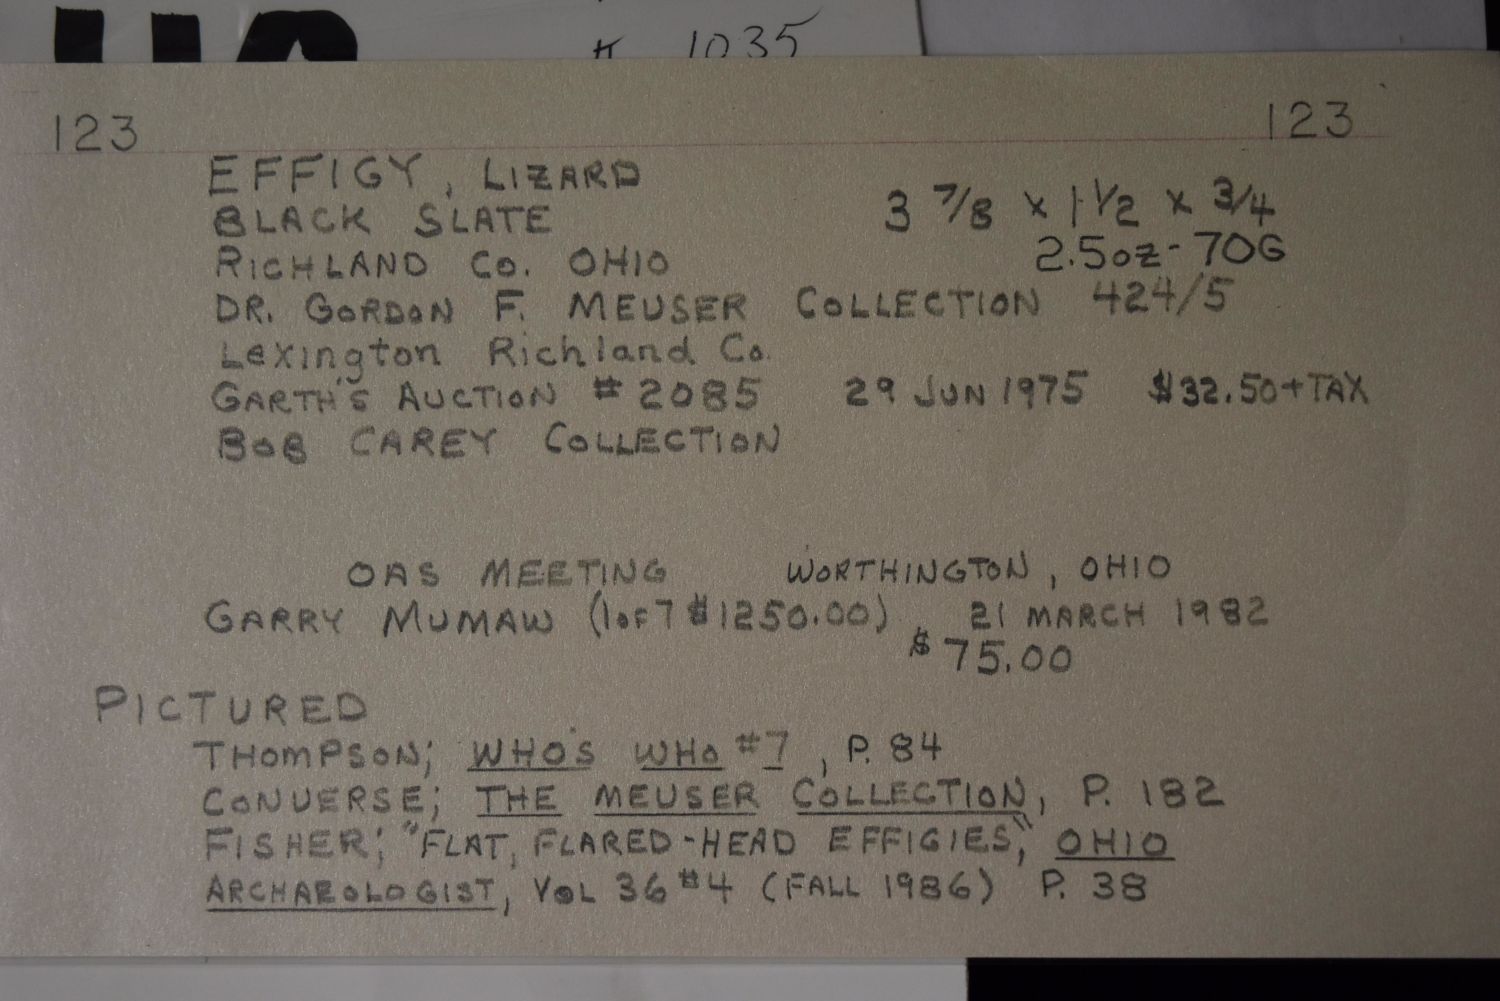 # 1035
123 123
EFFIGY, LIZARD
BLACK SLATE 3 7/8 x 1 1/2 x 3/4
RICHLAND Co. OHIO 2.5oz - 70G
DR. GORDON F. MEUSER COLLECTION 424/5
Lexington Richland Co.
GARTH'S AUCTION # 2085 29 JUN 1975 $32.50+TAX
BOB CAREY COLLECTION
OAS MEETING WORTHINGTON, OHIO
GARRY MUMAW (1 OF 7 $1250.00) 21 MARCH 1982
$75.00
PICTURED
THOMPSON; WHO'S WHO #7, P. 84
CONVERSE; THE MEUSER COLLECTION, P. 182
FISHER; "FLAT, FLARED-HEAD EFFIGIES", OHIO
ARCHAEOLOGIST, VOL 36 #4 (FALL 1986) P. 38